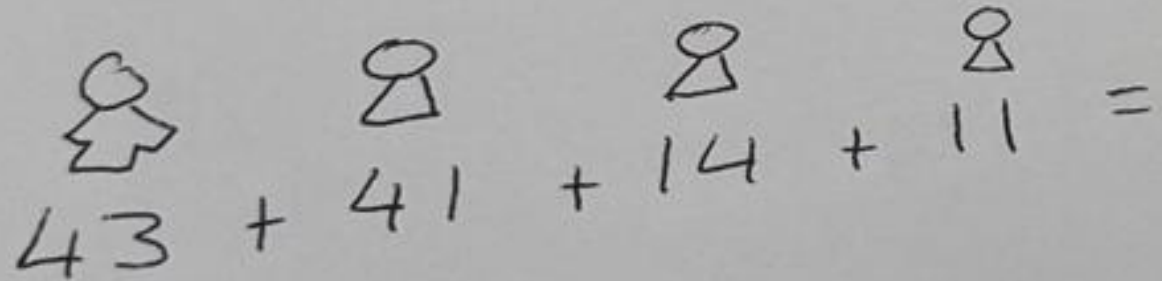 43 + 41 + 14 + 11 =